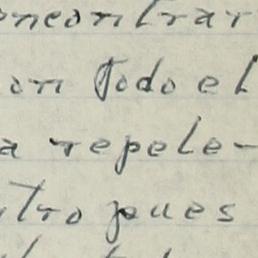 oncontrar
on todo el
a repele-
ltro pues